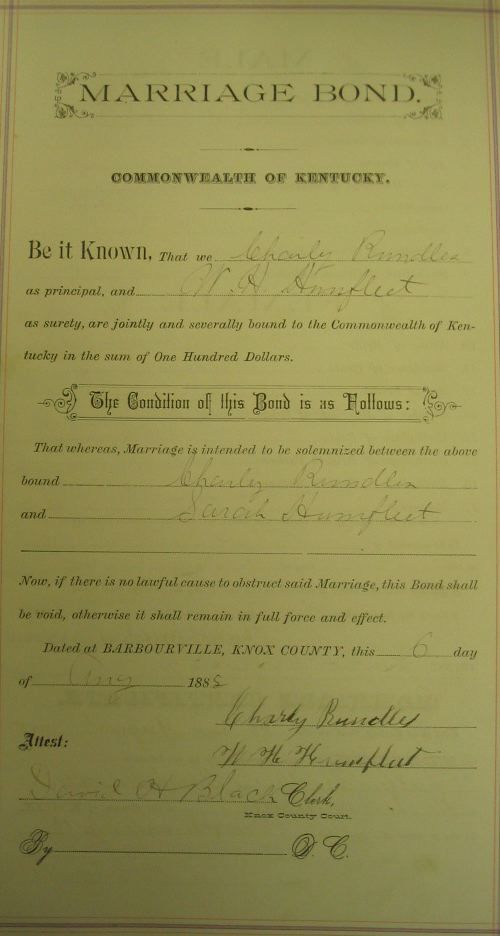 MARRIAGE BOND.
COMMONWEALTH OF KENTUCKY.
Be it Known, That we Charly Rundles
as principal, and W. H. Humfleet
as surety, are jointly and severally bound to the Commonwealth of Ken-
tucky in the sum of One Hundred Dollars.
The Condition of this Bond is as Follows:
That whereas, Marriage is intended to be solemnized between the above
bound Charley Rundles
and Sarah Humfleet
Now, if there is no lawful cause to obstruct said Marriage, this Bond shall
be void, otherwise it shall remain in full force and effect.
Dated at BARBOURVILLE, KNOX COUNTY, this 6 day
of Aug 188
Charly Rundles
Attest:
W H Humfleet
David H Black Clerk,
Knox County Court.
By D. C.